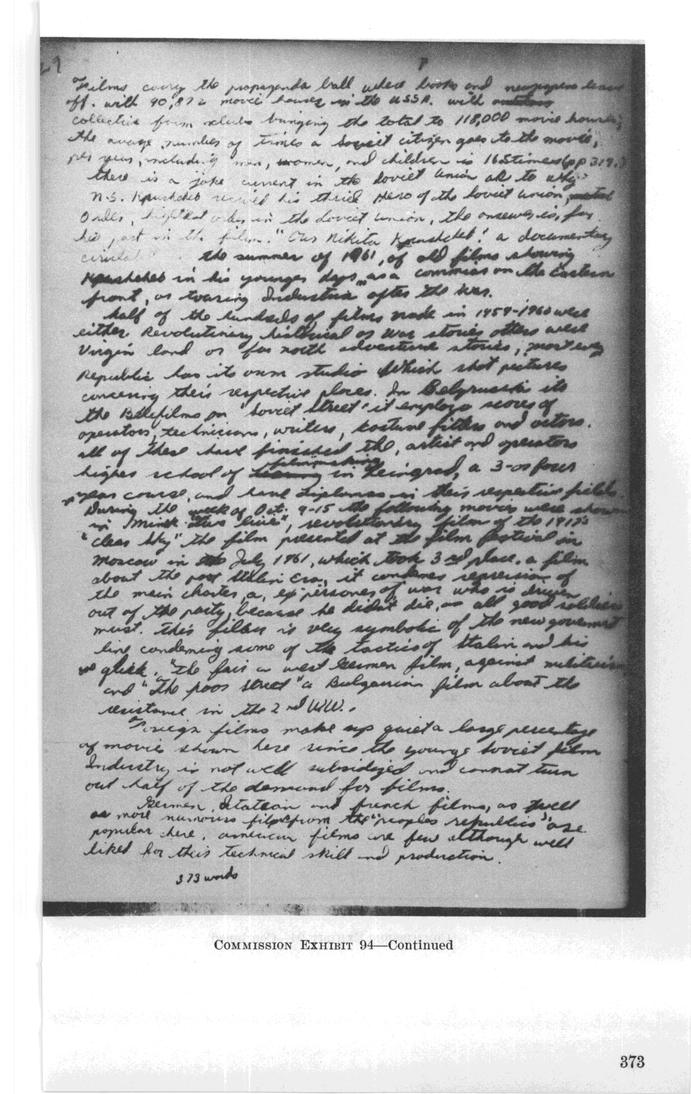 29
Films carry the propaganda ball where books and newspapers leave
off. with 90,872 movie houses in the USSR. with
collective farm clubs bringing the total to 118,000 movie houses,
the avarge number of times a soviet citizen goes to the movies,
per year, including men, women, and children is 16.5 times (pp 319.)
there is a joke current in the Soviet Union as to why
N.S. Kruschcheb recived his third Hero of the Soviet Union
Order, highest order in the Soviet Union, the answer is, for
his part in the film. "Our Nikita Kruschcheb! a documentary
the summer of 1961, of old films showing
Kruschcheb in his younger days, as a commisar on the Eastern
front, or touring Industria after the war.
half of the hundreds of films made in 1959-1960 were
either Revolutinery historical or war stories others were
Virgin land or far north adventure stories, most evey
Republic has its own studio which shot pictures
concering their respective places. In Belyrusski its
the Bellefilms on "soviet street" it employs scores of
operators, technicians, writers, kosture fitters and actors.
all of these have finished the, artist and operators
higher school of filmmaking in Leingrad, a 3-or four
year course, and have diplomas in their respective fields.
During the week of Oct. 9-15 the following movies were shown
in Minsk "two lives", revolutionary film of the 1917's
"clear sky" the film presented at the film festival in
Moscow in July 1961, which took 3rd place. a film
about the post Stalin era, it condems repression of
the main charter, a, ex prisoner of war who is driven
out of the party, because he did'nt die, as all good soldiers
must. this film is very symbolic of the new goverment
line condeming some of the tactics of Stalin and his
"the fair a west German film, against militarism
and "the poor street" a Bulgarian film about the
resistance in the 2nd WW.
Foreign films make up quiet a large percentage
of movies shown here since the younge Soviet film
Industry is not well subsidized and cannot turn
out half of the demand for films.
German, Itatean and french films, as well
as more numerous films from the "peoples republics" are
popular here, american films are few although well
liked for their technical skill and production.
373 words
COMMISSION EXHIBIT 94—Continued
373